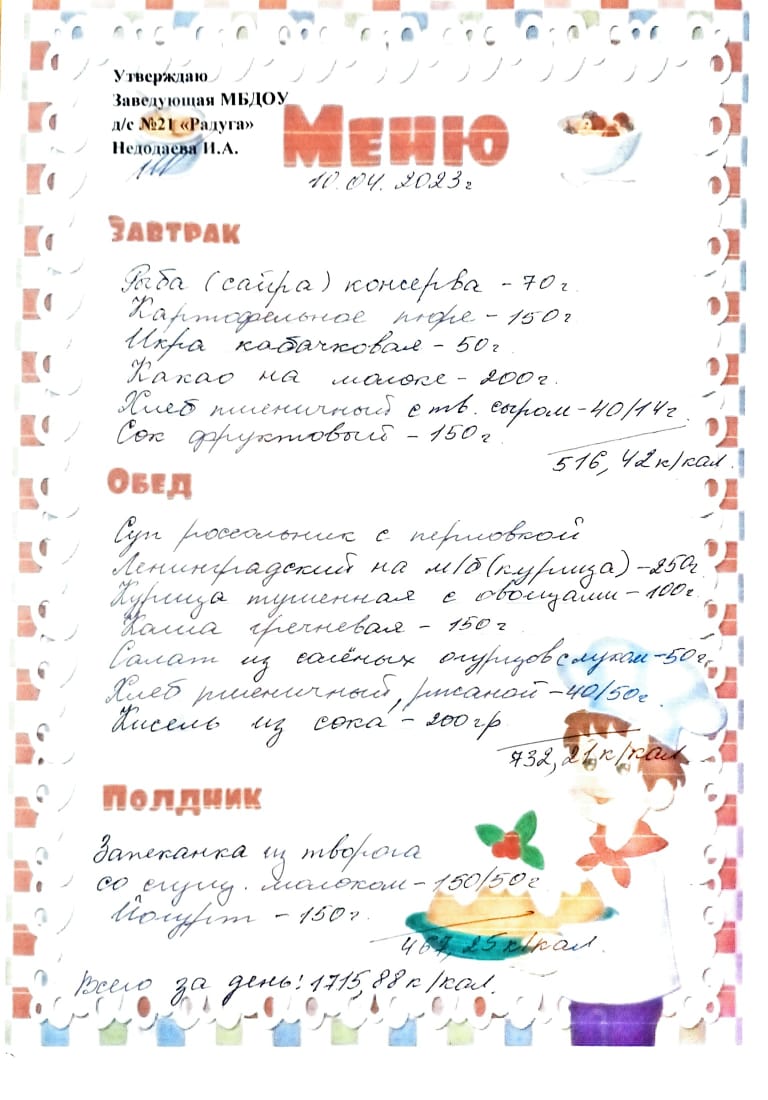 Утверждаю
Заведующая МБДОУ
д/с №21 «Радуга»
Недодаева И.А.
Меню
10.04.2023г
Завтрак
Рыба (сайра) консерва - 70г.
Картофельное пюре - 150г
Икра кабачковая - 50г.
Какао на молоке - 200г.
Хлеб пшеничный с тв. сыром - 40/14г.
Сок фруктовый - 150г.
516,42к/кал.
Обед
Суп россольник с перловкой
Ленинградский на м/б (курица) - 250г.
Курица тушенная с овощами - 100г.
Каша гречневая - 150г
Салат из солёных огурцов с луком - 50г.
Хлеб пшеничный, ржаной - 40/50г.
Кисель из сока - 200гр.
732,21к/кал
Полдник
Запеканка из творога
со сгущ. молоком - 150/50г.
Йогурт - 150г.
467,25к/кал.
Всего за день: 1715,88к/кал.